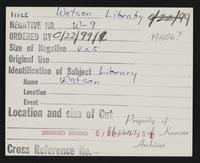 TITLE Watson Library 9/22/99
NEGATIVE NO. W-9
ORDERED BY 1940s?
Size of Negative 4x5
Original Use
Identification of Subject Library
Name Watson
Location
Event
Location and size of Cut
Property of
UNIVERSITY ARCHIVES University of Kansas
Archives
Cross Reference No.